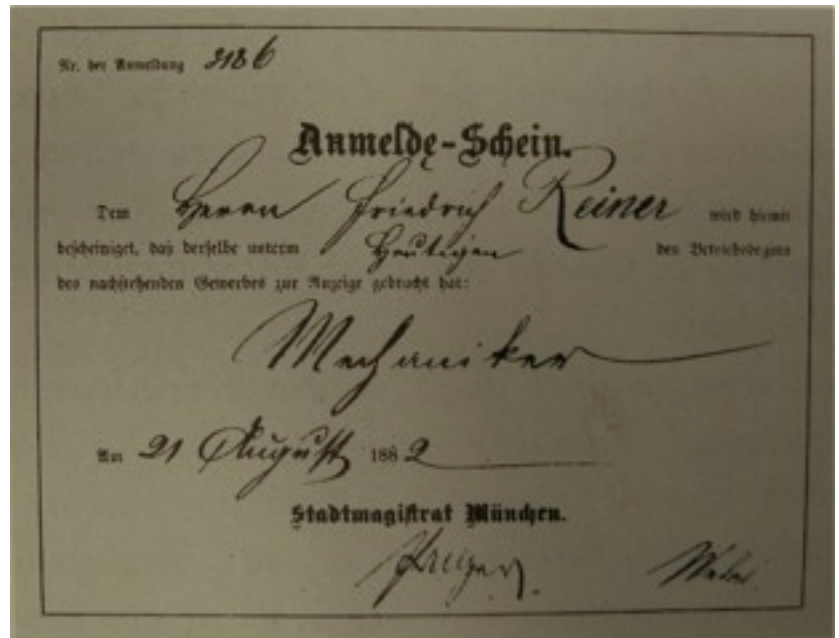 Nr. der Anmeldung 3186
Anmelde-Schein.
Dem Herrn Friedrich Reiner wird hiemit
bescheiniget, daß derselbe unterm Heutigen den Betriebsbeginn
des nachstehenden Gewerbes zur Anzeige gebracht hat:
Mechaniker
Am 21 August 1882
Stadtmagistrat München.